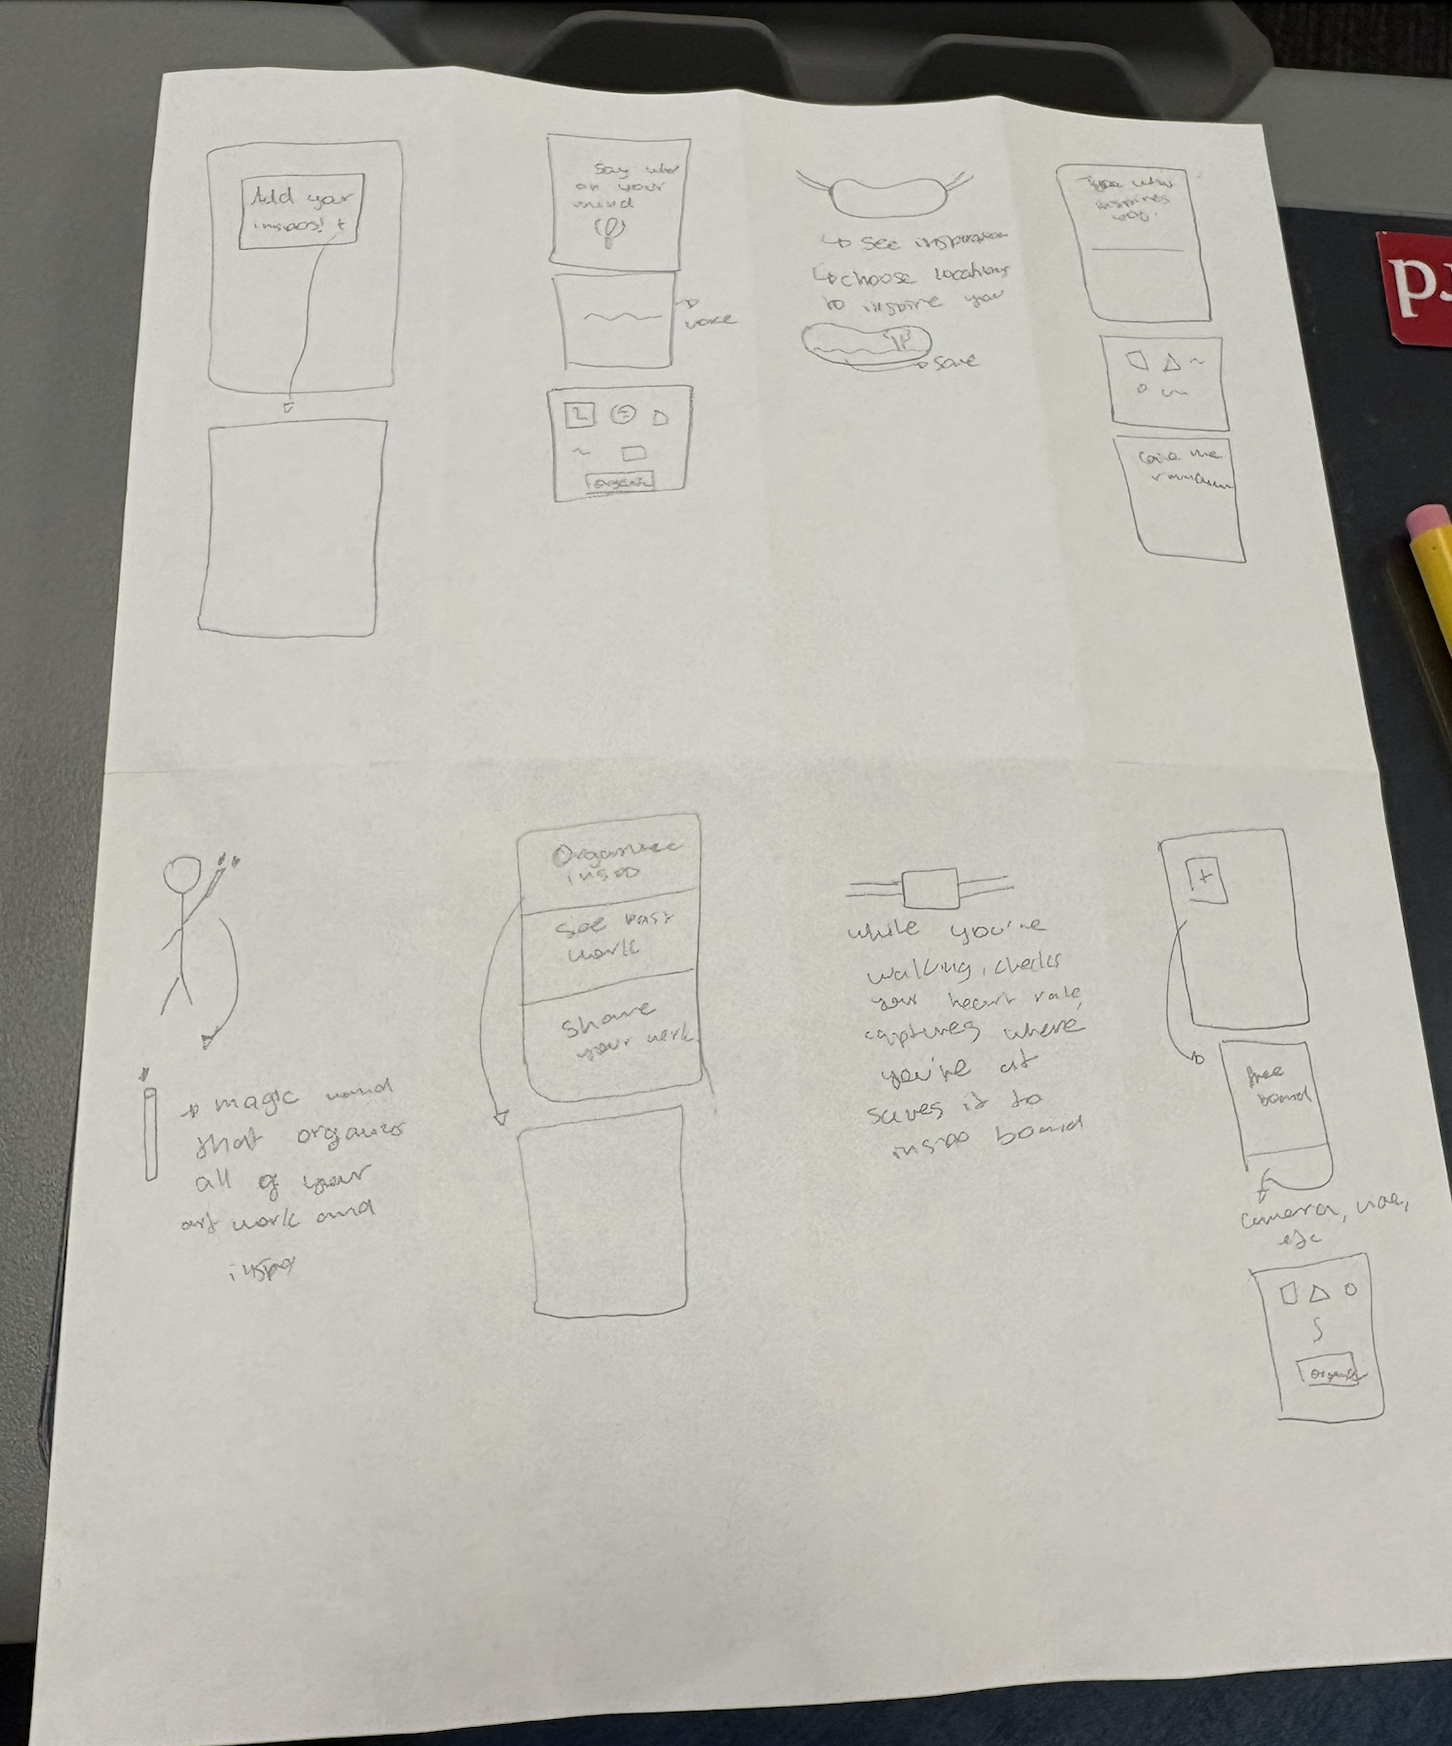 Add your
inspos! +
Say what
on your
mind
voice
organize
↳ see inspiration
↳ choose locations
to inspire you
save
Type what
inspires
you!
magic wand
that organizes
all of your
art work and
inspo
Organized
inspo
See past
work
Share
your work
while you're
walking, checks
your heart rate,
captures where
you're at
saves it to
inspo board
+
free
board
camera,
etc
organize